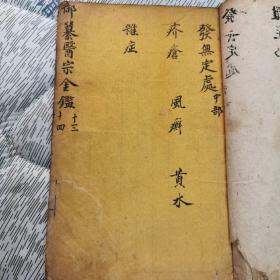 發無定處中部
疥瘡 風癬 黃水
雜症
御纂醫宗金鑑 十三 十四